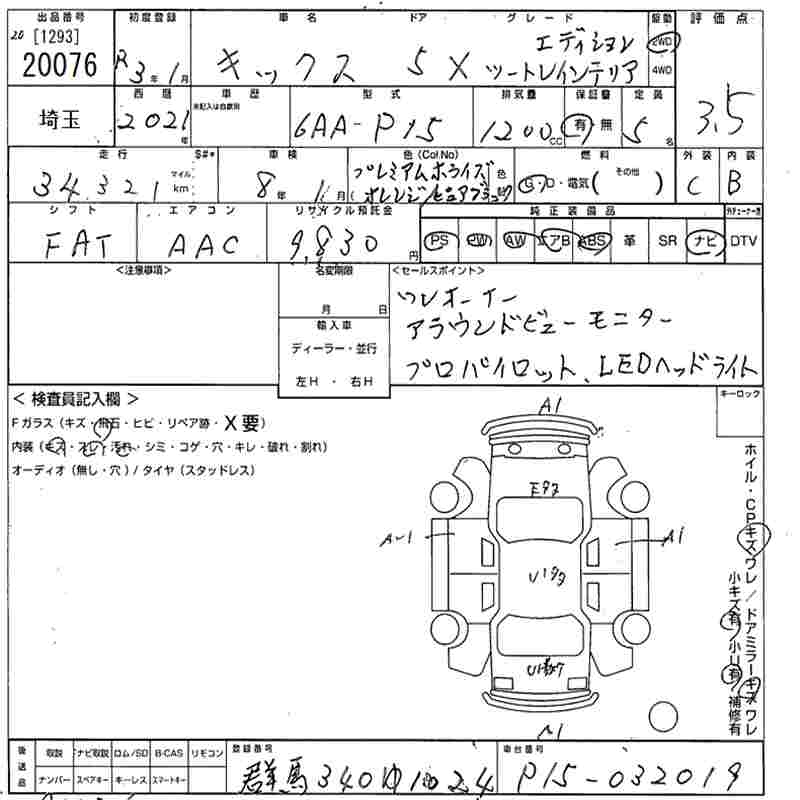 出品番号 初度登録 車名 ドア グレード 駆動 評価点
20 [1293]
20076 R3年1月 キックス 5 X エディション ツートーンインテリア 2WD 4WD 3.5
埼玉 西暦 車歴 型式 排気量 保証書 定員
未記入は自家用
2021年 6AA-P15 1200cc 有・無 5名
走行 S#* 車検 色(Col.No) 燃料 外装 内装
34,321 マイル km 8年1月 プレミアムホライズンオレンジ/ピュアブラック 色替 G・D・電気( その他 ) C B
シフト エアコン リサイクル預託金 純正装備品
FAT AAC 9,830円 PS PW AW エアB ABS 革 SR ナビ DTV
<注意事項> 名変期限 <セールスポイント>
月 日
ワンオーナー
輸入車
アラウンドビューモニター
ディーラー・並行
左H ・ 右H
プロパイロット、LEDヘッドライト
< 検査員記入欄 > キーロック
Fガラス(キズ・飛石・ヒビ・リペア跡・X要)
内装(キズ・スレ・汚れ・シミ・コゲ・穴・キレ・破れ・割れ)
オーディオ(無し・穴)/タイヤ(スタッドレス)
A1
Eタタ
A-1 A1
U1タタ
A1
ホイル・CPキズワレ/ドアミラーキズワレ
小キズ有 小U有 補修有
後送品 取説 ナビ取説 ロム/SD B-CAS リモコン 登録番号 車台番号
ナンバー スペアキー キーレス スマートキー 群馬340ゆ1024 P15-032019